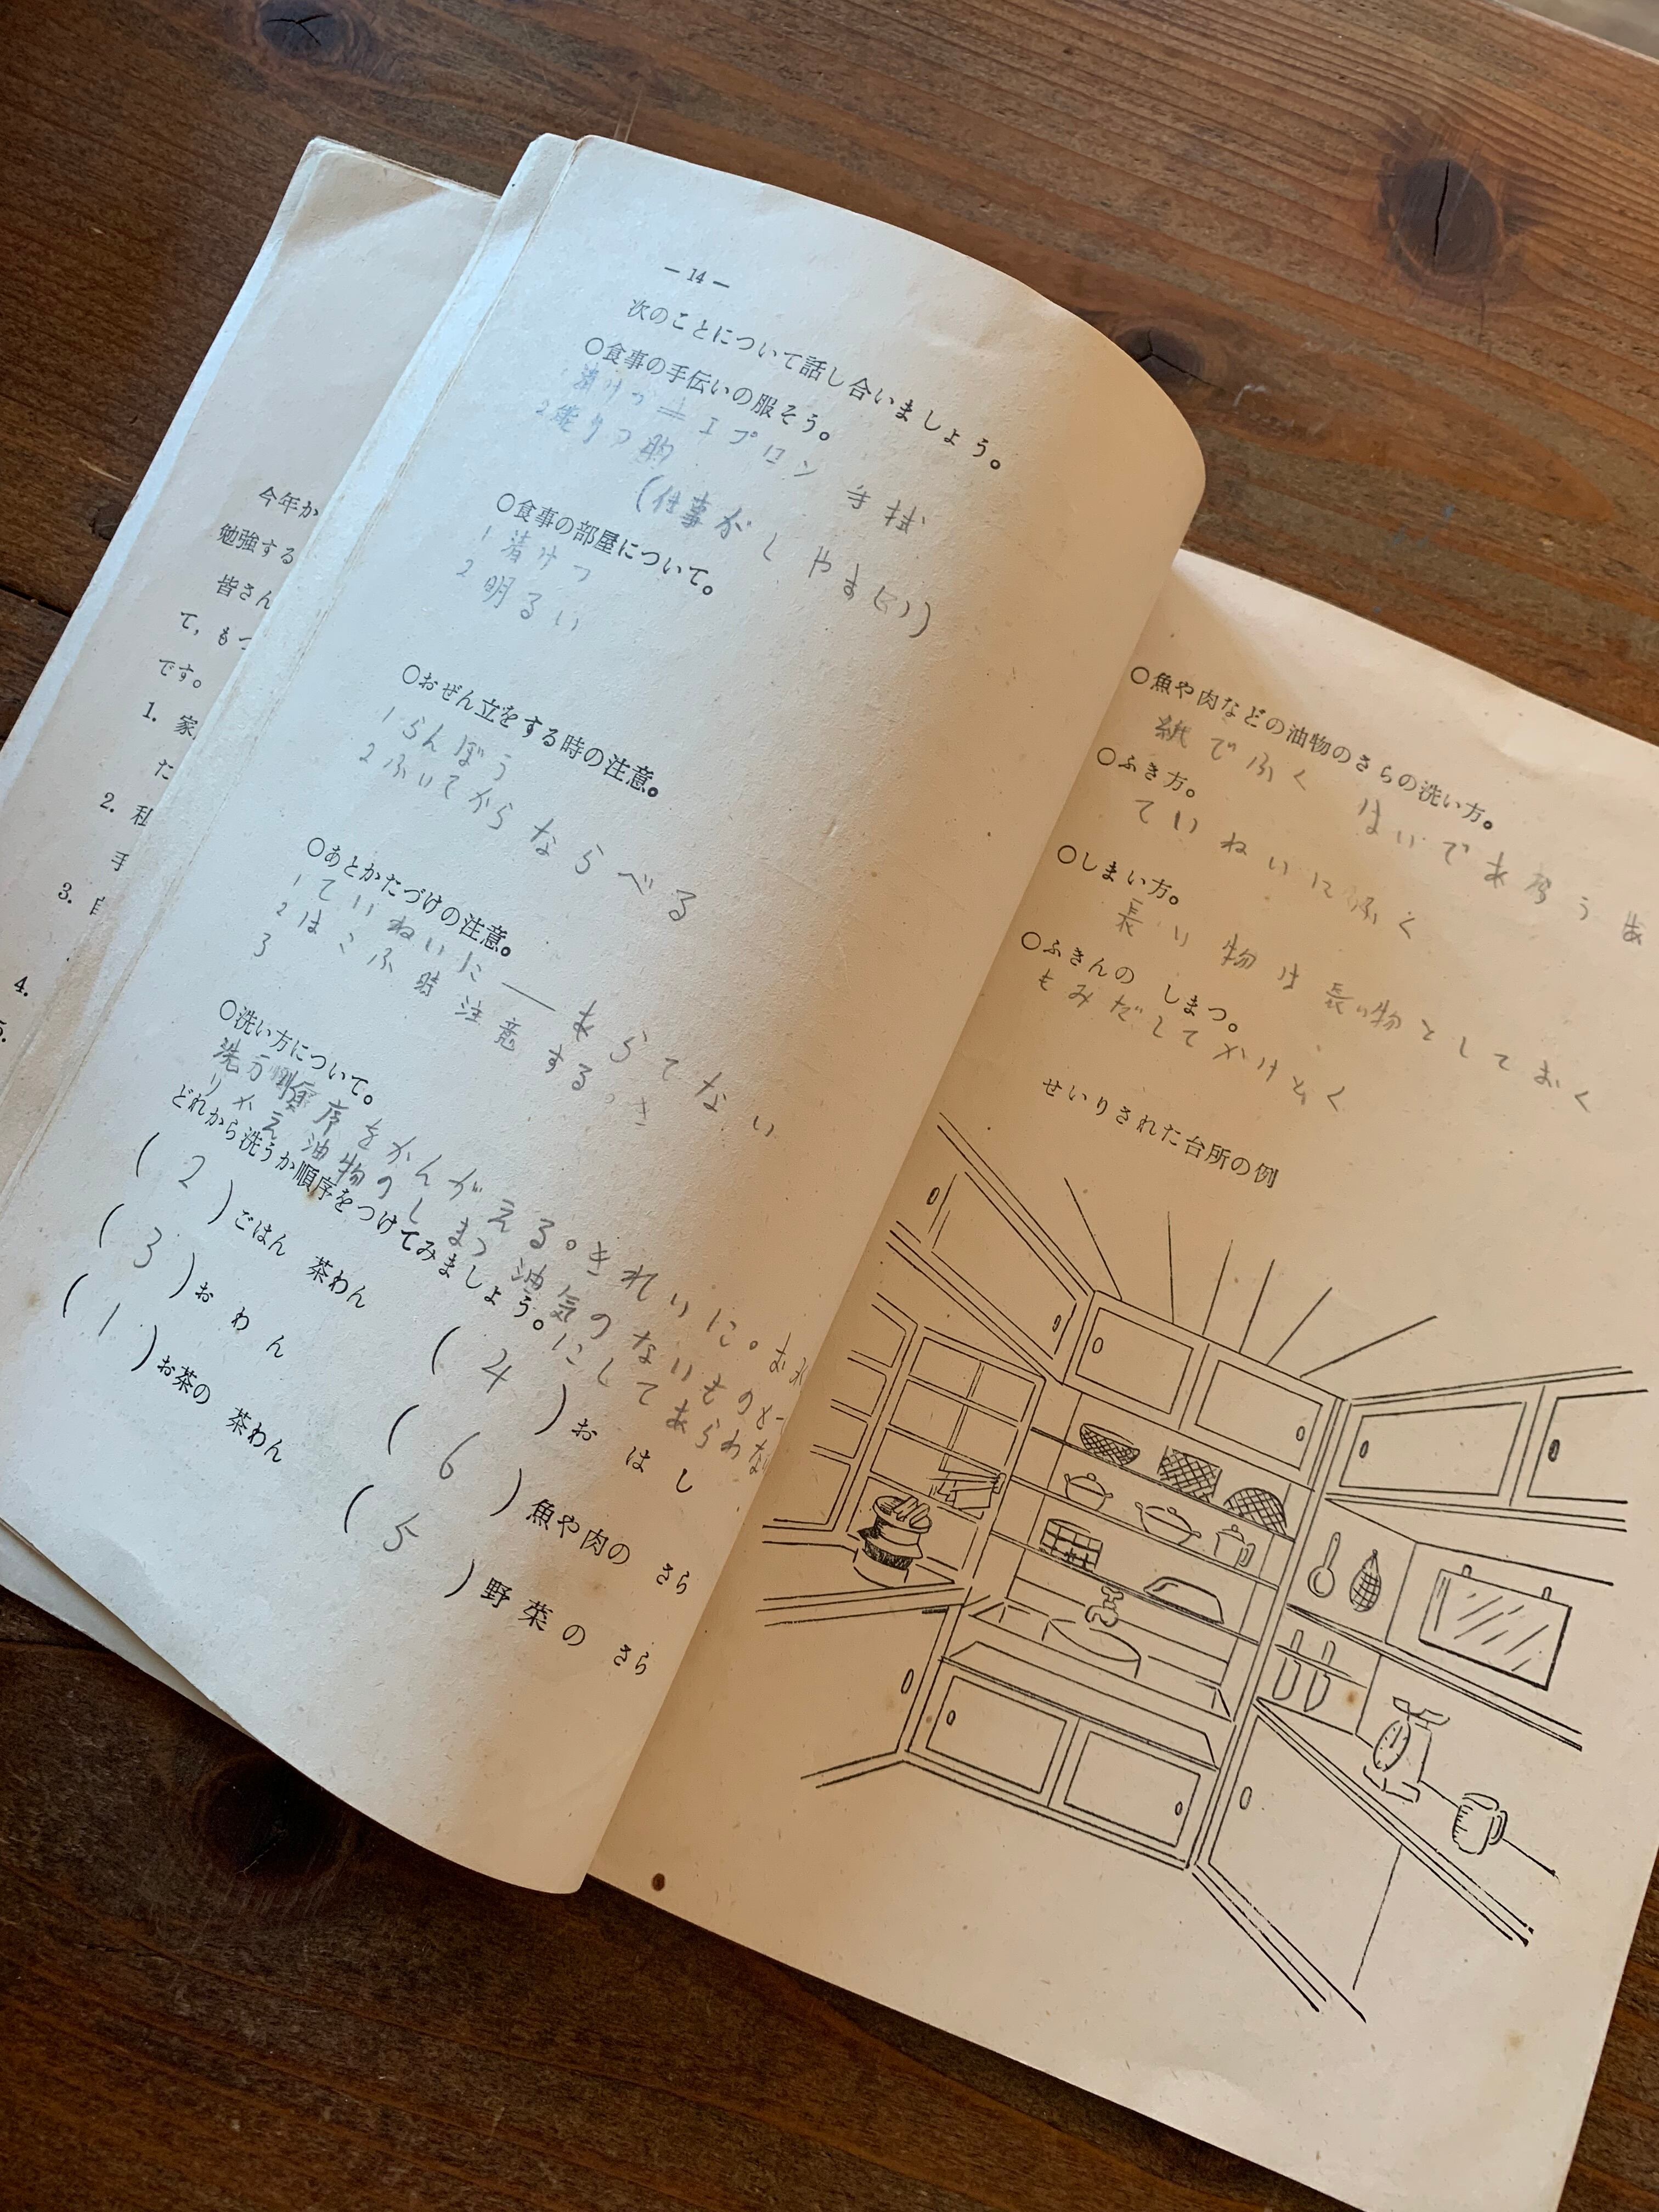 今年か
勉強する
皆さん
て，もつ
です。
1. 家
た
2. 私
手
3.
4.
5.
— 14 —
次のことについて話し合いましょう。
○食事の手伝いの服そう。
1 清けつ エプロン 手拭
2 能りつ的
(仕事がしやすい)
○食事の部屋について。
1 清けつ
2 明るい
○おぜん立をする時の注意。
1 らんぼう
2 ふいてからならべる
○あとかたづけの注意。
1 ていねいに — あらてない
2 はこぶ時注意する。
3
○洗い方について。
洗方順序をかんがえる。きれいに。お水
りかえ 油物のしまつ 油気のないものと
にしてあらわな
どれから洗うか順序をつけてみましょう。
( 2 ) ごはん 茶わん
( 4 ) おはし
( 3 ) おわん
( 6 ) 魚や肉の さら
( 1 ) お茶の 茶わん
( 5 ) 野菜の さら
○魚や肉などの油物のさらの洗い方。
紙でふく はいであ う
○ふき方。
ていねいに ふく
○しまい方。
長い物は長い物としておく
○ふきんの しまつ。
もみだしてかけとく
せいりされた台所の例